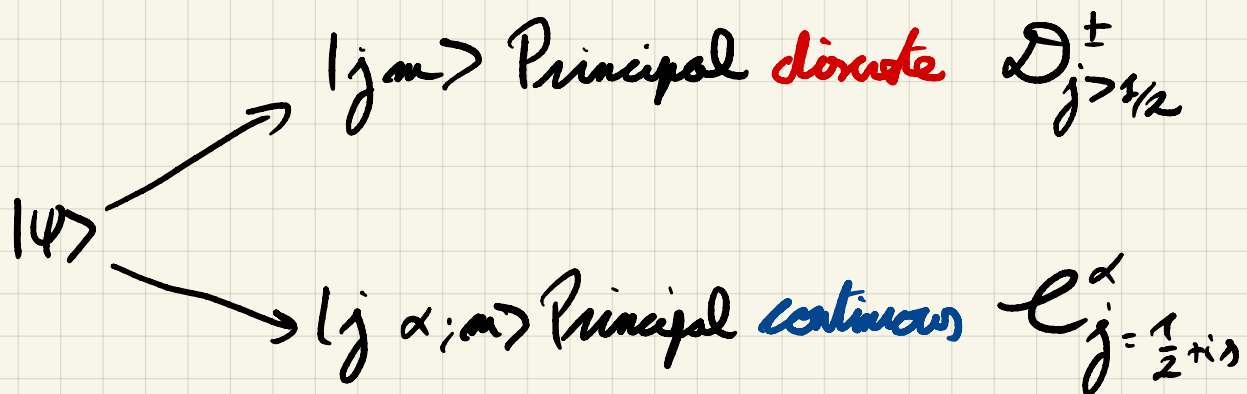 |j m> Principal discrete D^±_{j>1/2}
|ψ>
|j α; m> Principal continuous C^α_{j=1/2+is}